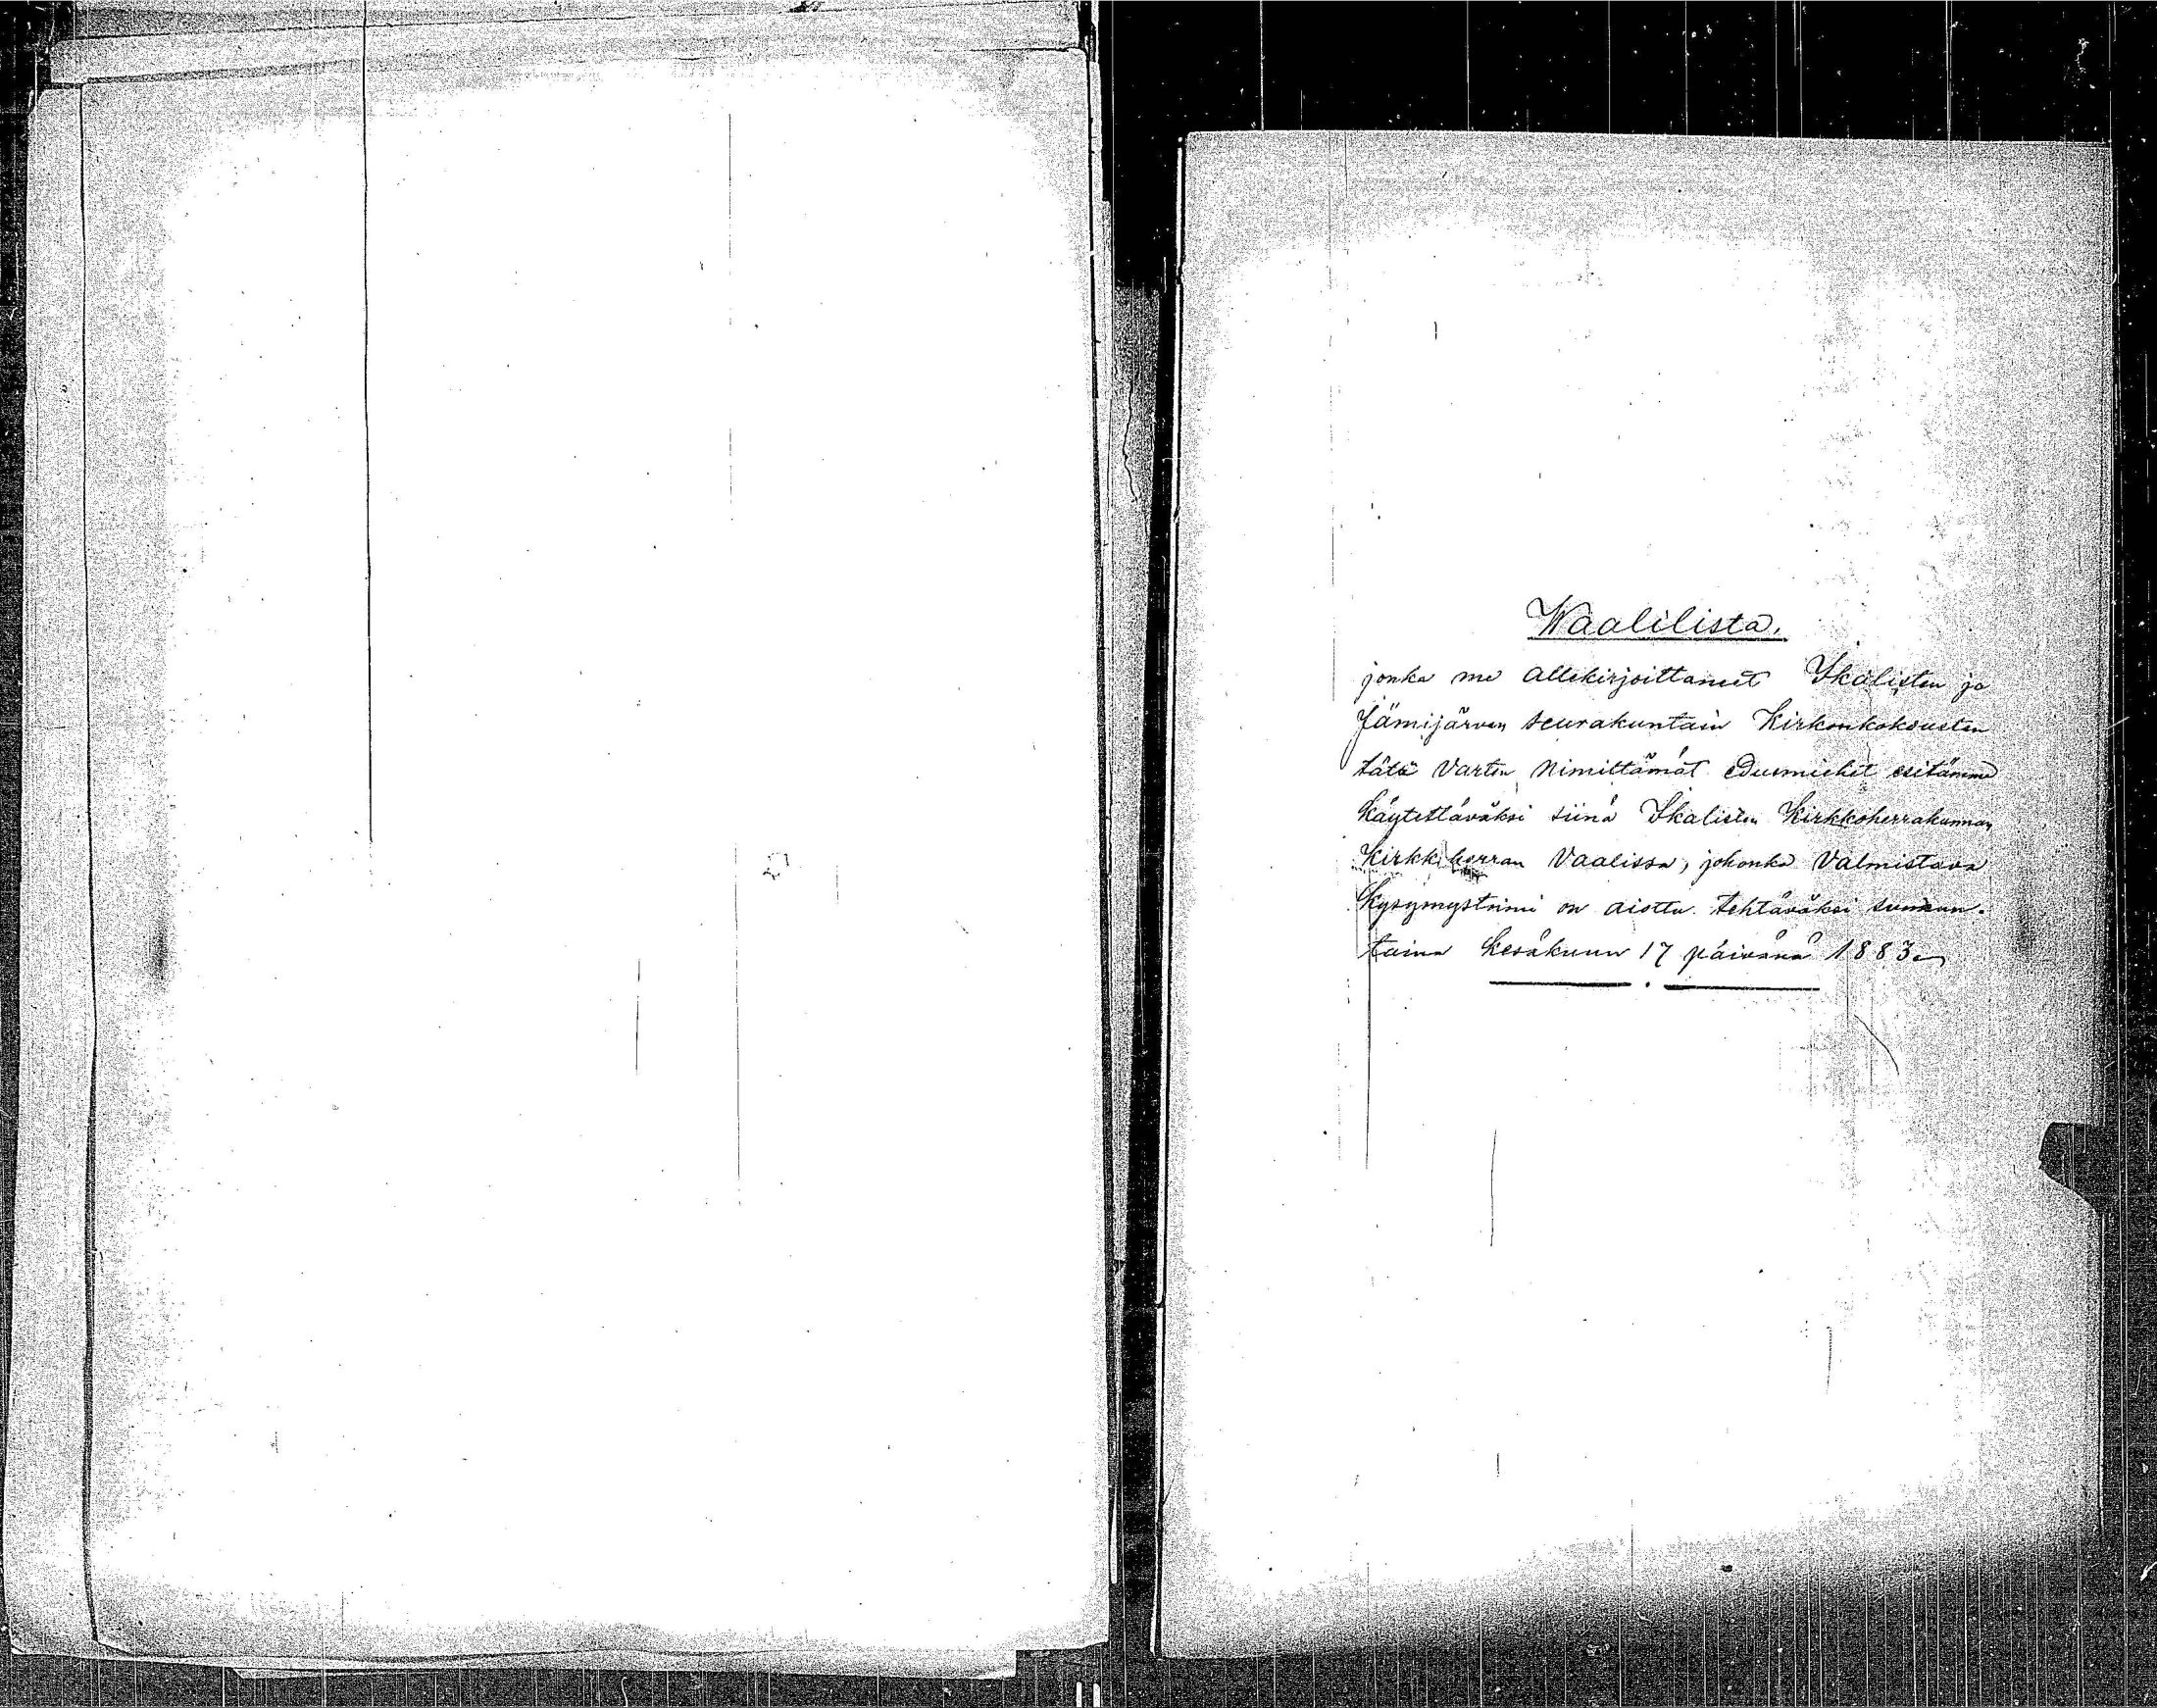 Waalilista.
jonka me allekirjoittaneet Ikalisten ja
Jämijärven seurakuntain Kirkonkokousten
tätä varten nimittämät edusmiehet esitämme
käytettäväksi siinä Ikalisten Kirkkoherrakunnan
Kirkkoherran Vaalissa, johonka Valmistava
Kysymystoimi on aiottu tehtäväksi sunnun-
taina Kesäkuun 17 päivänä 1883.